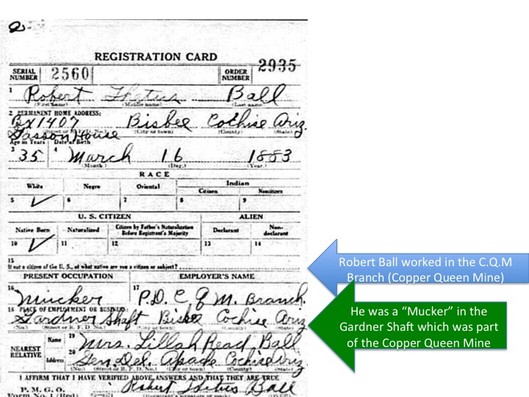 REGISTRATION CARD
SERIAL NUMBER 2560 ORDER NUMBER 2935
1 Robert Ball
(First name) (Middle name) (Last name)
2 PERMANENT HOME ADDRESS:
Bx 1407 Bisbee Cochise Ariz
House (City or town) (County) (State)
Age in Years Date of Birth
3 35 4 March 16 1883
(Month.) (Day.) (Year.)
RACE
White Negro Oriental Indian
Citizen Noncitizen
5 ✓ 6 7 8 9
U. S. CITIZEN ALIEN
Native Born Naturalized Citizen by Father's Naturalization Before Registrant's Majority Declarant Non-declarant
10 ✓ 11 12 13 14
15
If not a citizen of the U. S., of what nation are you a citizen or subject?
PRESENT OCCUPATION EMPLOYER'S NAME
16 Mucker 17 P.D. C Q M. Branch
18 PLACE OF EMPLOYMENT OR BUSINESS:
Gardner Shaft Bisbee Cochise Ariz
(No.) (Street or R. F. D. No.) (City or town) (County) (State)
NEAREST RELATIVE Name 19 Mrs. Lillah Head Ball
Address 20 Gen Del. Cochise Ariz
(No.) (Street or R. F. D. No.) (City or town) (County) (State)
I AFFIRM THAT I HAVE VERIFIED ABOVE ANSWERS AND THAT THEY ARE TRUE
P. M. G. O.
Form No. 1 (Red) Robert Ball
Robert Ball worked in the C.Q.M
Branch (Copper Queen Mine)
He was a “Mucker” in the
Gardner Shaft which was part
of the Copper Queen Mine